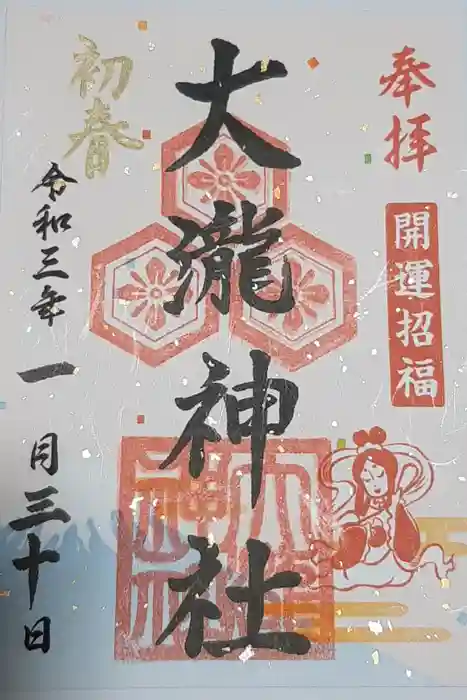 奉拝
開運招福
大瀧神社
大瀧神社
初春
令和三年一月三十日